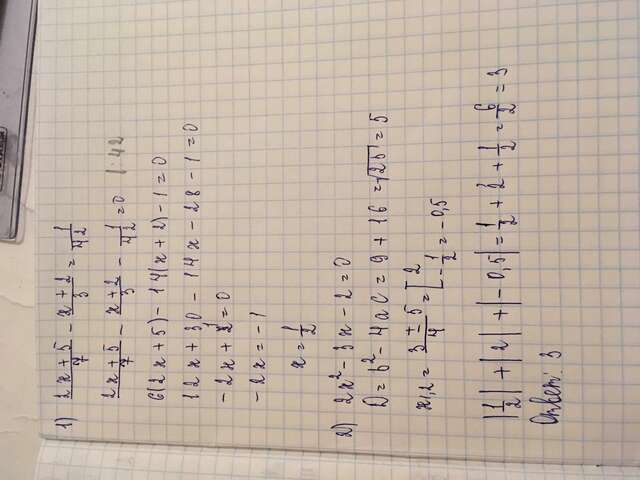 1) (2x+5)/7 - (x+2)/3 = 1/42
(2x+5)/7 - (x+2)/3 - 1/42 = 0 | · 42
6(2x+5) - 14(x+2) - 1 = 0
12x + 30 - 14x - 28 - 1 = 0
-2x + 1 = 0
-2x = -1
x = 1/2
2) 2x² - 3x - 2 = 0
D = b² - 4ac = 9 + 16 = √25 = 5
x1,2 = (3 ± 5)/4 = [ 2
- 1/2 = -0,5
|1/2| + |2| + |-0,5| = 1/2 + 2 + 1/2 = 6/2 = 3
Ответ: 3